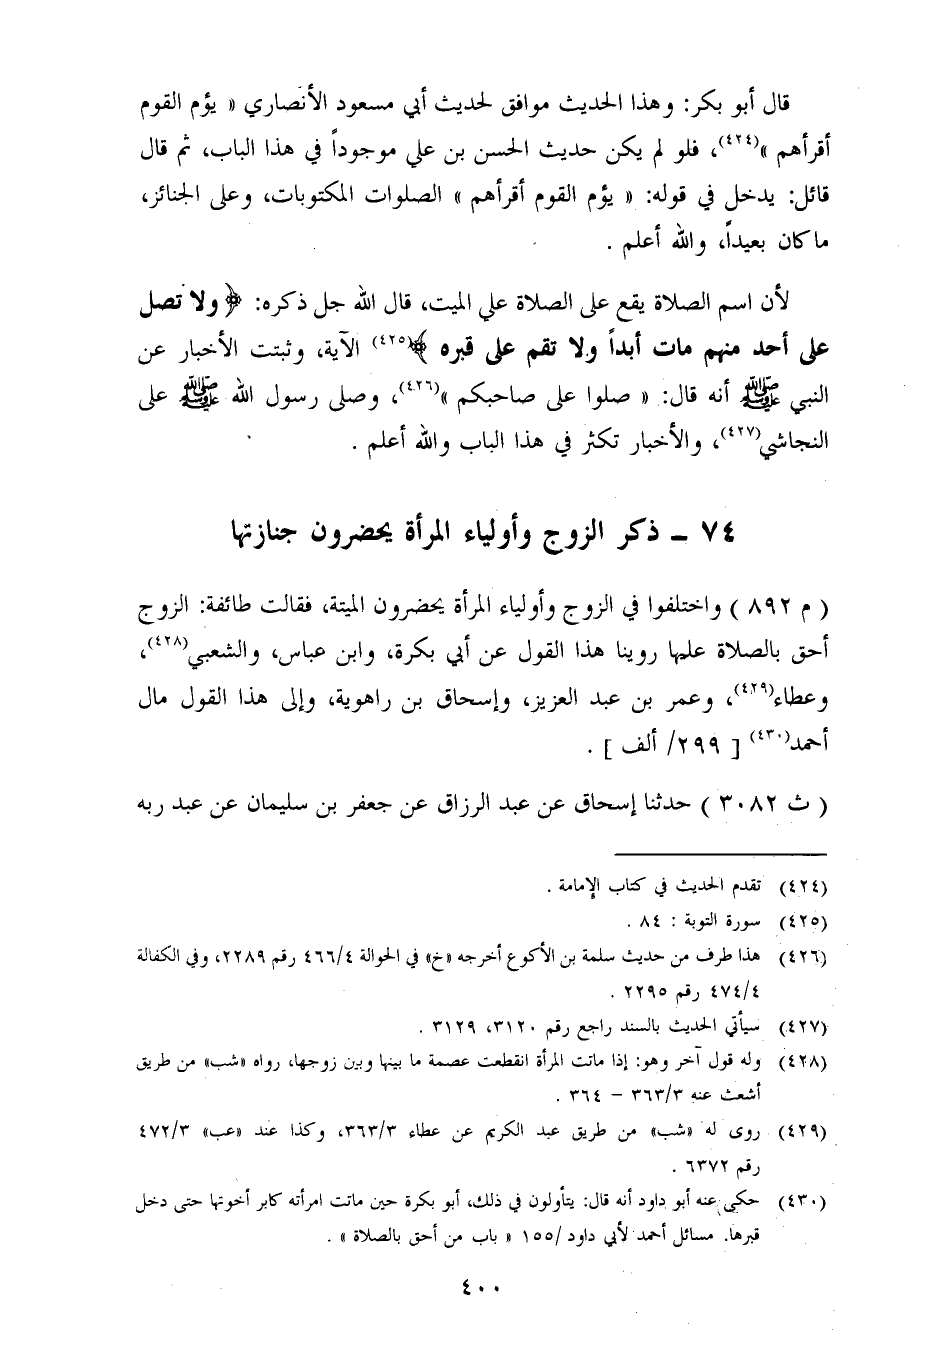 قال أبو بكر: وهذا الحديث موافق لحديث أبي مسعود الأنصاري « يؤم القوم
أقرأهم »(٤٢٤)، فلو لم يكن حديث الحسن بن علي موجوداً في هذا الباب، ثم قال
قائل: يدخل في قوله: « يؤم القوم أقرأهم » الصلوات المكتوبات، وعلى الجنائز،
ما كان بعيداً، والله أعلم .
لأن اسم الصلاة يقع على الصلاة على الميت، قال الله جل ذكره: ﴿ ولا تصل
على أحد منهم مات أبداً ولا تقم على قبره ﴾(٤٢٥) الآية، وثبتت الأخبار عن
النبي ﷺ أنه قال: « صلوا على صاحبكم »(٤٢٦)، وصلى رسول الله ﷺ على
النجاشي(٤٢٧)، والأخبار تكثر في هذا الباب والله أعلم .
٧٤ – ذكر الزوج وأولياء المرأة يحضرون جنازتها
( م ٨٩٢ ) واختلفوا في الزوج وأولياء المرأة يحضرون الميتة، فقالت طائفة: الزوج
أحق بالصلاة عليها روينا هذا القول عن أبي بكرة، وابن عباس، والشعبي(٤٢٨)،
وعطاء(٤٢٩)، وعمر بن عبد العزيز، وإسحاق بن راهوية، وإلى هذا القول مال
أحمد(٤٣٠) [ ٢٩٩/ ألف ] .
( ث ٣٠٨٢ ) حدثنا إسحاق عن عبد الرزاق عن جعفر بن سليمان عن عبد ربه
(٤٢٤) تقدم الحديث في كتاب الإمامة .
(٤٢٥) سورة التوبة : ٨٤ .
(٤٢٦) هذا طرف من حديث سلمة بن الأكوع أخرجه «خ» في الحوالة ٤٦٦/٤ رقم ٢٢٨٩، وفي الكفالة
٤٧٤/٤ رقم ٢٢٩٥ .
(٤٢٧) سيأتي الحديث بالسند راجع رقم ٣١٢٠، ٣١٢٩ .
(٤٢٨) وله قول آخر وهو: إذا ماتت المرأة انقطعت عصمة ما بينها وبين زوجها، رواه «شب» من طريق
أشعث عنه ٣٦٣/٣ – ٣٦٤ .
(٤٢٩) روى له «شب» من طريق عبد الكريم عن عطاء ٣٦٣/٣، وكذا عند «عب» ٤٧٢/٣
رقم ٦٣٧٢ .
(٤٣٠) حكى عنه أبو داود أنه قال: يتأولون في ذلك، أبو بكرة حين ماتت امرأته كابر أخوتها حتى دخل
قبرها. مسائل أحمد لأبي داود /١٥٥ « باب من أحق بالصلاة » .
٤٠٠